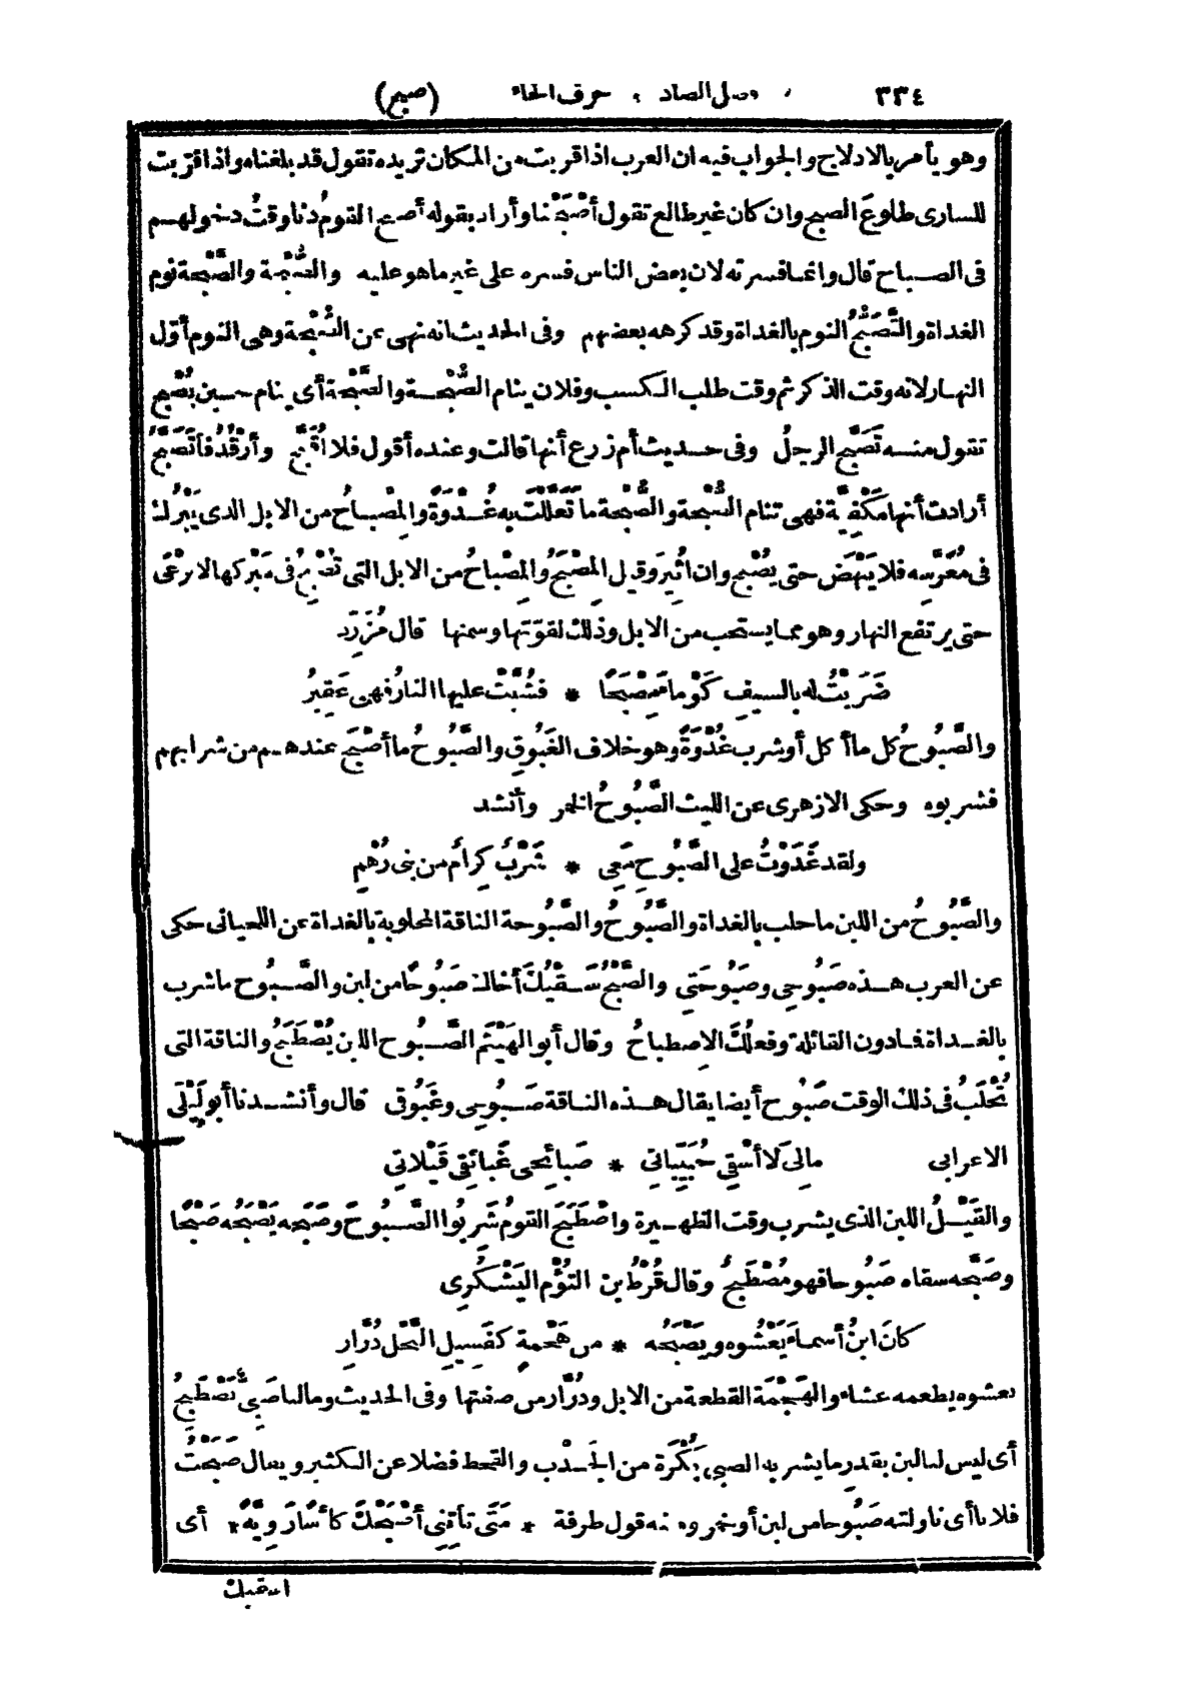 ٣٣٤ فصل الصاد ، حرف الحاء (صبح)
وهو يأمر بالادلاج والجواب فيه ان العرب اذا قربت من المكان تريده تقول قد بلغناه واذا قربت
للسارى طلوعَ الصبح وان كان غير طالع تقول أَصْبَحْنا وأراد بقوله أصبح القومُ دنا وقتُ دخولهم
فى الصباح قال وانما فسرته لان بعض الناس فسره على غير ما هو عليه والصُّبْحة والصَّبْحة نوم
الغداة والتَّصَبُّحُ النوم بالغداة وقد كرهه بعضهم وفى الحديث انه نهى عن الصُّبْحة وهى النوم أوّل
النهار لانه وقت الذكر ثم وقت طلب الكسب وفلان ينام الصُّبْحة والصَّبْحة أى ينام حين يُصْبح
تقول منه تَصَبَّح الرجلُ وفى حديث أم زرع أنها قالت وعنده أقول فلا أُقَبَّح وأَرْقُدُ فأَتَصَبَّحُ
أرادت أنها مَكْفِيَّة فهى تنام الصُّبْحة والصُّبْحة ما تَعَلَّلْتَ به غُدْوَةً والمِصْباحُ من الابل الذى يَبْرُك
فى مُعَرَّسِه فلا يَنْهَض حتى يُصْبح وان أُثِيرَ وقيل المِصْبَحُ والمِصْباحُ من الابل التى تُصْبِحُ فى مَبْركها لا تَرْعَى
حتى يرتفع النهار وهو مما يستحب من الابل وذلك لقوّتها وسمنها قال مُزَرِّد
ضَرَبْتُ له بالسيفِ كَوْماءَ مِصْبَحًا * فشُبَّتْ عليها النارُ فهى عَقِيرُ
والصَّبُوحُ كل ما أكل أو شرب غُدْوَةً وهو خلاف الغَبُوقِ والصَّبُوحُ ما أَصْبَحَ عندهم من شرابهم
فشربوه وحكى الازهرى عن الليث الصَّبُوحُ الخمر وأنشد
ولقد غَدَوْتُ على الصَّبُوحِ مَعِى * شَرْبٌ كِرامٌ من بنى رُهْمِ
والصَّبُوحُ من اللبن ما حلب بالغداة والصَّبُوحُ والصَّبُوحة الناقة المحلوبة بالغداة عن اللحيانى حكى
عن العرب هذه صَبُوحِى وصَبُوحَتِى والصَّبْحُ سَقْيُكَ أخاك صَبُوحًا من لبن والصَّبُوح ما شرب
بالغداة فما دون القائلة وفعلُكَ الاِصطباحُ وقال أبو الهَيْثَم الصَّبُوح اللبن يُصْطَبَحُ والناقة التى
تُحْلَبُ فى ذلك الوقت صَبُوح أيضا يقال هذه الناقة صَبُوحِى وغَبُوقى قال وأنشدنا أبو لَيْلَى
الاعرابى مالِىَ لا أَسْقِى حُبَيِّباتِى * صَبائِحى غَبائِقِى قَيْلاتِى
والقَيْلُ اللبن الذى يشرب وقت الظهيرة واصْطَبَحَ القومُ شَرِبُوا الصَّبُوحَ وصَبَحَه يَصْبَحُه صَبْحًا
وصَبَّحه سقاه صَبُوحا فهو مُصْطَبِحٌ وقال قُرْطُ بن التُّؤْم اليَشْكُرِى
كانَ ابنُ أسماءَ يَعْشُوه ويَصْبَحُه * من هَجْمةٍ كفَسِيلِ النَّخلِ دُرَّارِ
يعشوه يطعمه عشاء والهَجْمَة القطعة من الابل ودُرَّار من صفتها وفى الحديث وما لنا صَبِىٌّ يَصْطَبِحُ
أى ليس لنا لبن بقدرِ ما يشربه الصبى بُكْرَة من الجَدْب والقحط فضلا عن الكثير ويقال صَبَحْتُ
فلانا أى ناولته صَبُوحا من لبن أو خمر ومنه قول طرفة * مَتَى تأتِنِى أَصْبَحْكَ كأسًا رَوِيَّةً * أى
اسقيك